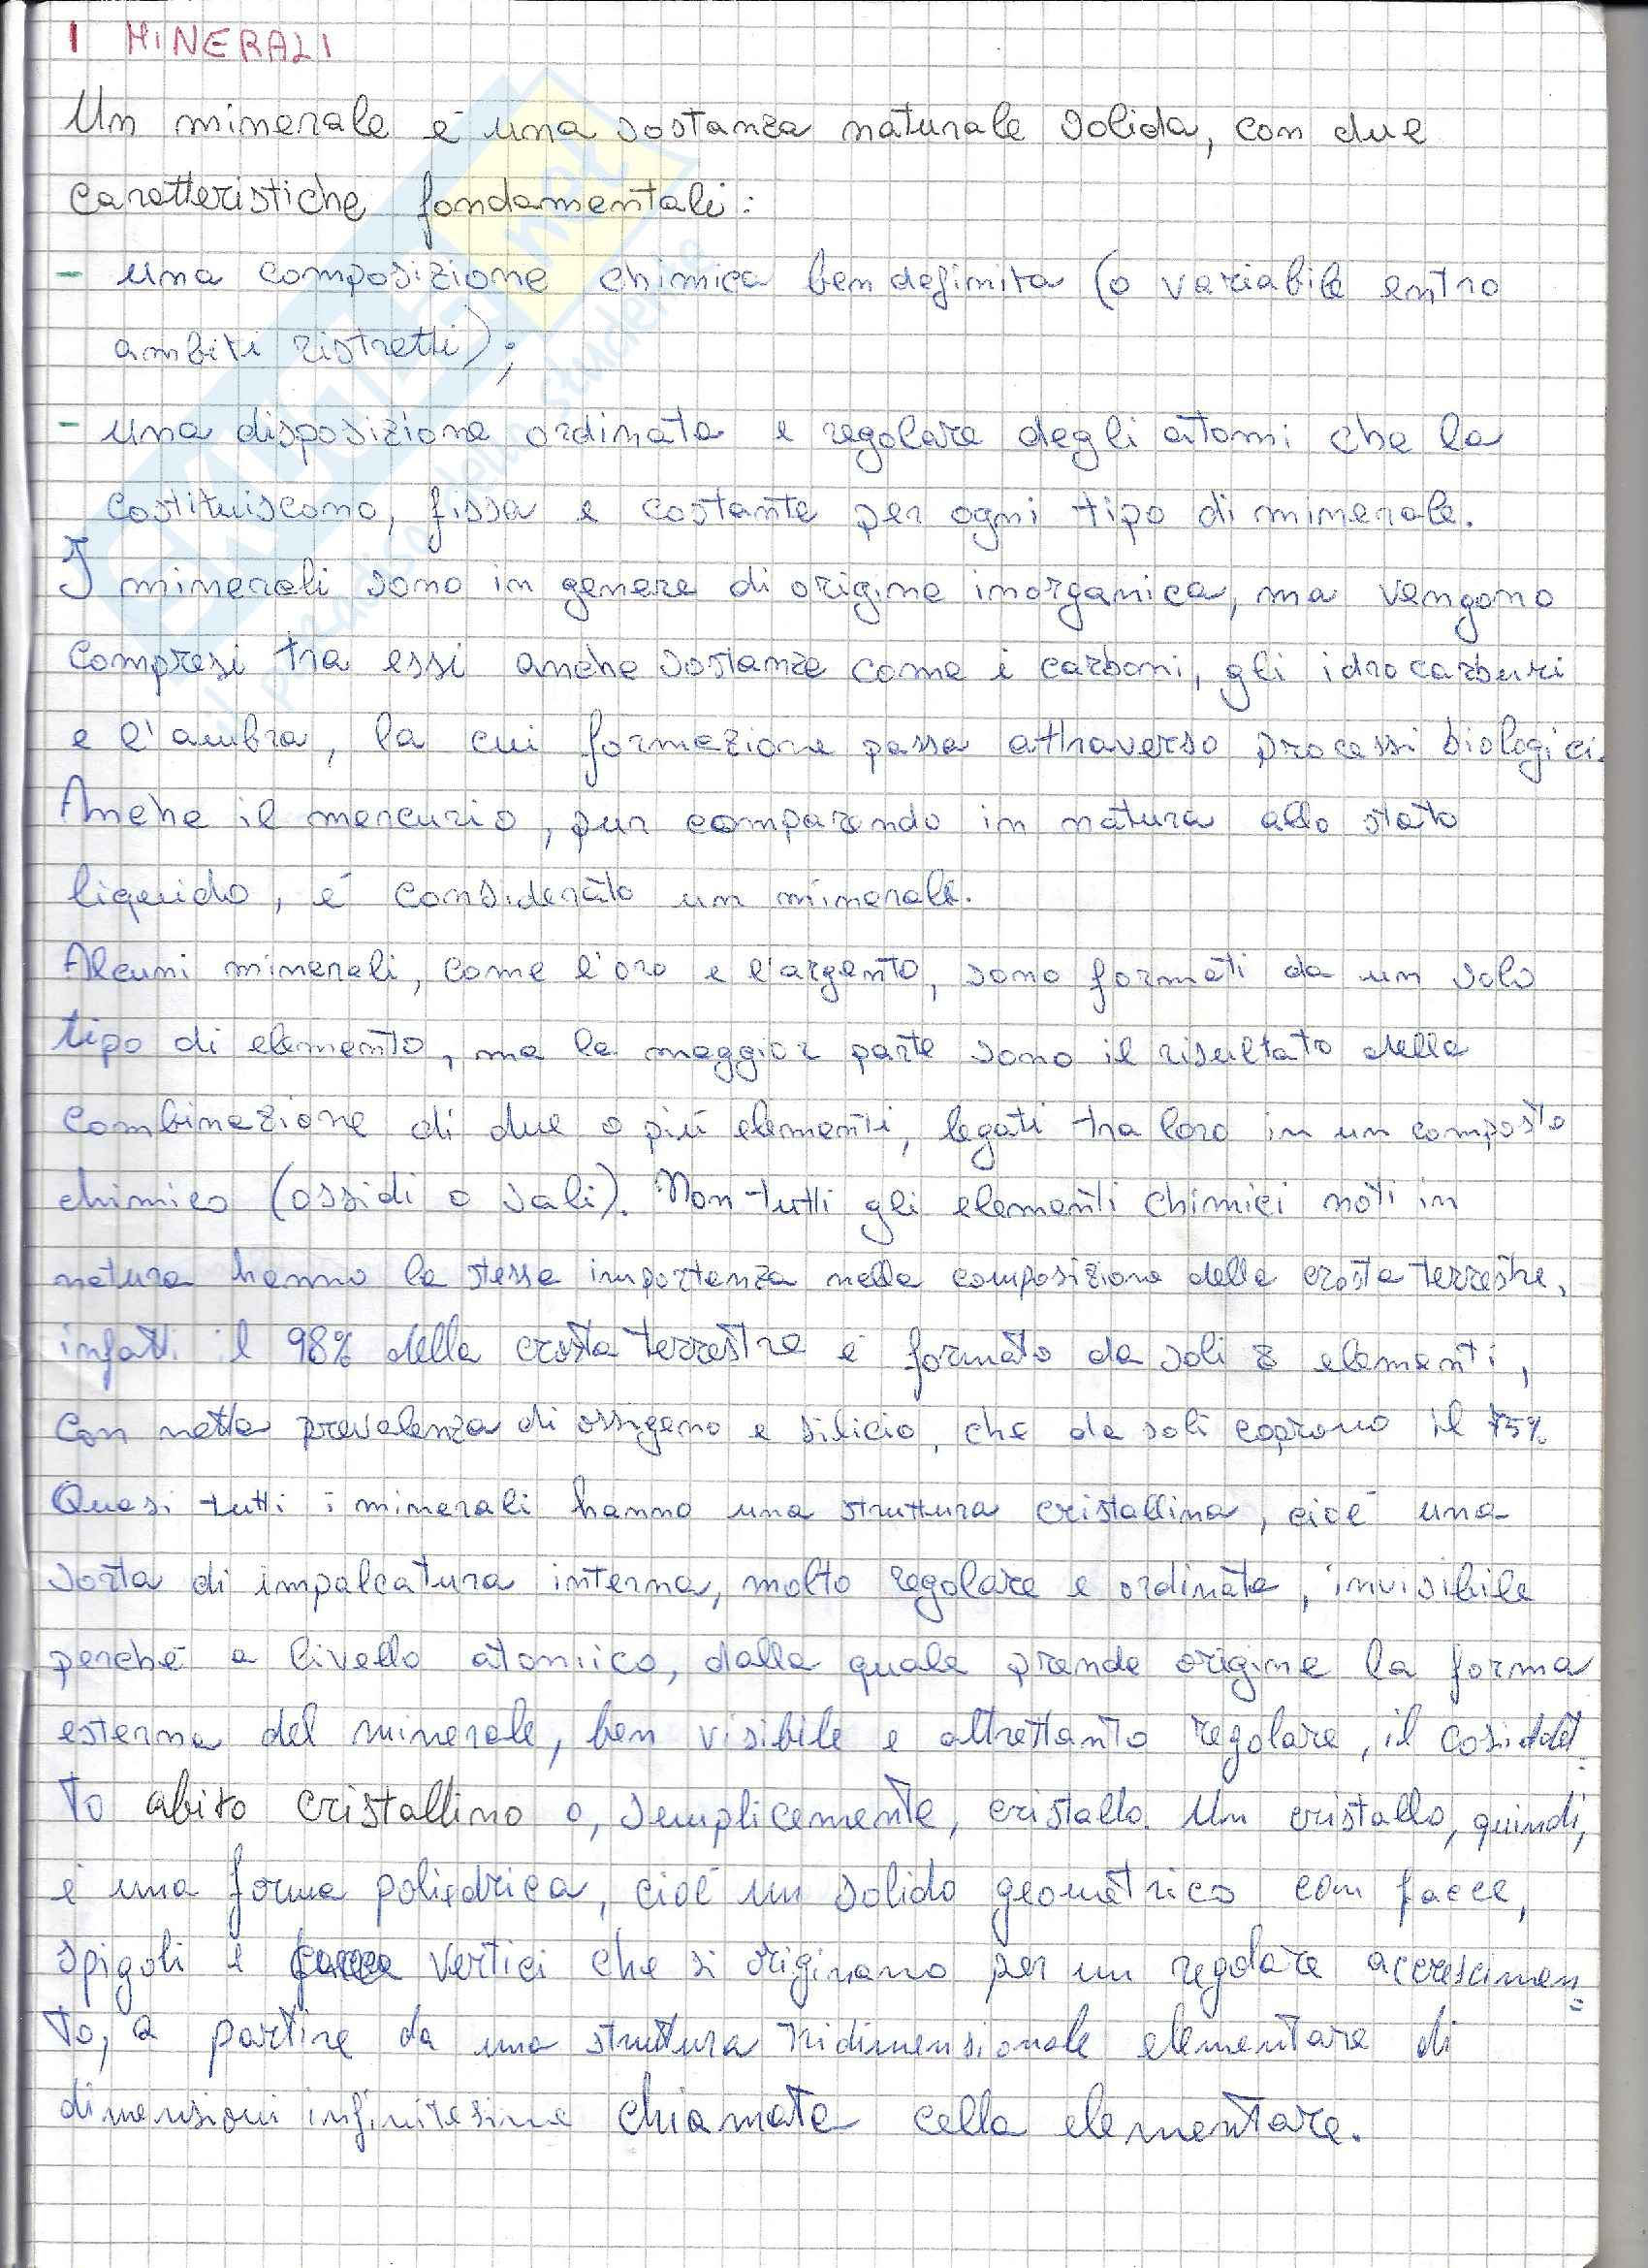 I MINERALI
Un minerale é una sostanza naturale solida, con due
caratteristiche fondamentali:
- una composizione chimica ben definita (o variabile entro
ambiti ristretti);
- una disposizione ordinata e regolare degli atomi che la
costituiscono, fissa e costante per ogni tipo di minerale.
I minerali sono in genere di origine inorganica, ma vengono
compresi tra essi anche sostanze come i carboni, gli idrocarburi
e l'ambra, la cui formazione passa attraverso processi biologici.
Anche il mercurio, pur comparendo in natura allo stato
liquido, é considerato un minerale.
Alcuni minerali, come l'oro e l'argento, sono formati da un solo
tipo di elemento, ma la maggior parte sono il risultato della
combinazione di due o piú elementi, legati tra loro in un composto
chimico (ossidi o sali). Non tutti gli elementi chimici noti in
natura hanno la stessa importanza nella composizione della crosta terrestre,
infatti il 98% della crosta terrestre é formato da soli 8 elementi,
con netta prevalenza di ossigeno e silicio, che da soli coprono il 75%.
Quasi tutti i minerali hanno una struttura cristallina, cioé una
sorta di impalcatura interna, molto regolare e ordinata, invisibile
perché a livello atomico, dalla quale prende origine la forma
esterna del minerale, ben visibile e altrettanto regolare, il cosiddet
to abito cristallino o, semplicemente, cristallo. Un cristallo, quindi,
é una forma poliedrica, cioé un solido geometrico con facce,
spigoli e vertici che si originano per un regolare accrescimen=
to, a partire da una struttura tridimensionale elementare di
dimensioni infinitesime chiamata cella elementare.